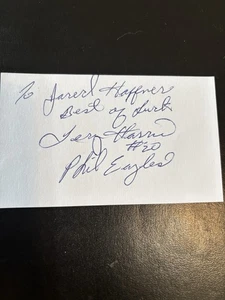 To Jarerd Haffner
Best of Luck
Harris
#20
Phil Eagles